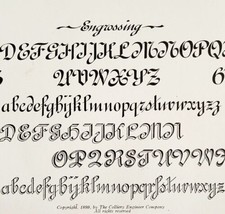 Engrossing
DEFGHIJKLMNOPQ
UVWXYZ 6
abcdefghijklmnopqrstuvwxyz
DEFGHIJKLMN
OPQRSTUVWXYZ
abcdefghijklmnopqrstuvwxyz
Copyright, 1899, by The Colliery Engineer Company
All rights reserved